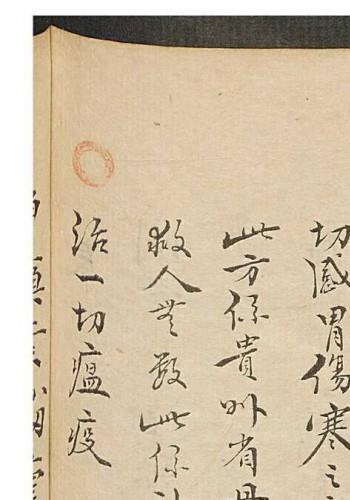 切感冒傷寒之
此方係貴州省
救人無數此係
治一切瘟疫